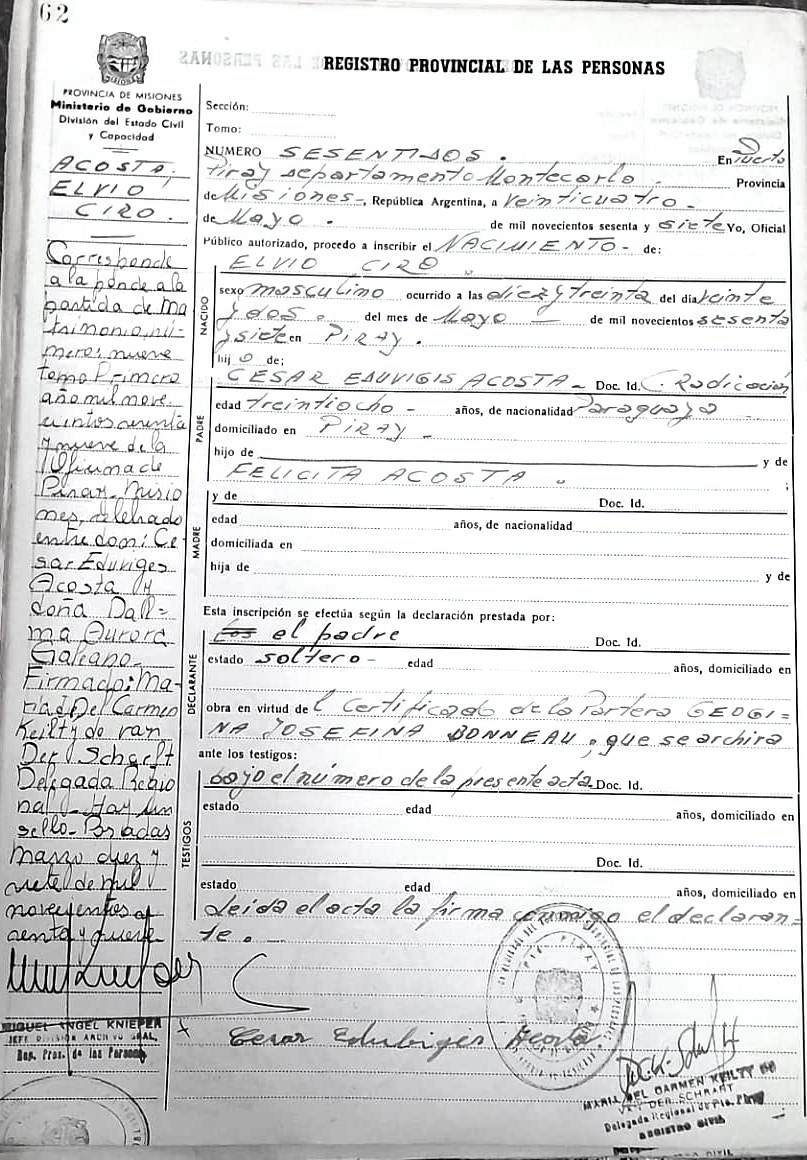 62
REGISTRO PROVINCIAL DE LAS PERSONAS
PROVINCIA DE MISIONES
Ministerio de Gobierno
División del Estado Civil
y Capacidad
ACOSTA,
ELVIO
CIRO.
Corresponde
a la ponde a la
partida de Ma
trimonio nú-
mero: nueve
tomo Primero
año mil nove
cientos sesenta
y nueve de la
Oficina de
Piray Misio
nes, celebrado
entre don: Ce
sar Eduviges
Acosta y
doña Dall=
ma Aurora
Galeano.
Firmado: Ma-
ria Del Carmen
Keilty de van
Der Scharft
Delegada Regio
nal - Hay un
sello - Posadas
Marzo diez y
siete de mil
novecientos
senta y nueve
MIGUEL ANGEL KNIEPER
JEFE DIVISION ARCHIVO GRAL.
Reg. Prov. de las Personas
Sección:
Tomo:
NUMERO SESENTIDOS. En Puerto
Piray departamento Montecarlo - Provincia
de Misiones -, República Argentina, a Veinticuatro -
de Mayo. de mil novecientos sesenta y siete Yo, Oficial
Público autorizado, procedo a inscribir el NACIMIENTO - de:
ELVIO CIRO
NACIDO
sexo masculino ocurrido a las diez y treinta del día veinte
y dos. del mes de Mayo - de mil novecientos sesenta
y siete en PIRAY.
hij o de:
PADRE
CESAR EDUVIGIS ACOSTA - Doc. Id. C. Radicación
edad treintiocho - años, de nacionalidad Paraguaya
domiciliado en PIRAY -
hijo de y de
FELICITA ACOSTA ;
MADRE
y de Doc. Id.
edad años, de nacionalidad
domiciliada en
hija de y de
Esta inscripción se efectúa según la declaración prestada por:
DECLARANTE
Los el padre Doc. Id.
estado soltero - edad años, domiciliado en
obra en virtud de l Certificado de la Partera GEOGI=
NA JOSEFINA BONNEAU, que se archiva
ante los testigos:
TESTIGOS
bajo el número de la presente acta. Doc. Id.
estado edad años, domiciliado en
Doc. Id.
estado edad años, domiciliado en
Leida el acta la firma conmigo el declaran=
te. -
Cesar Edubigis Acosta
MARIA DEL CARMEN KEILTY DE
VAN DER SCHRAFT
Delegada Regional de Pto. Piray
REGISTRO CIVIL